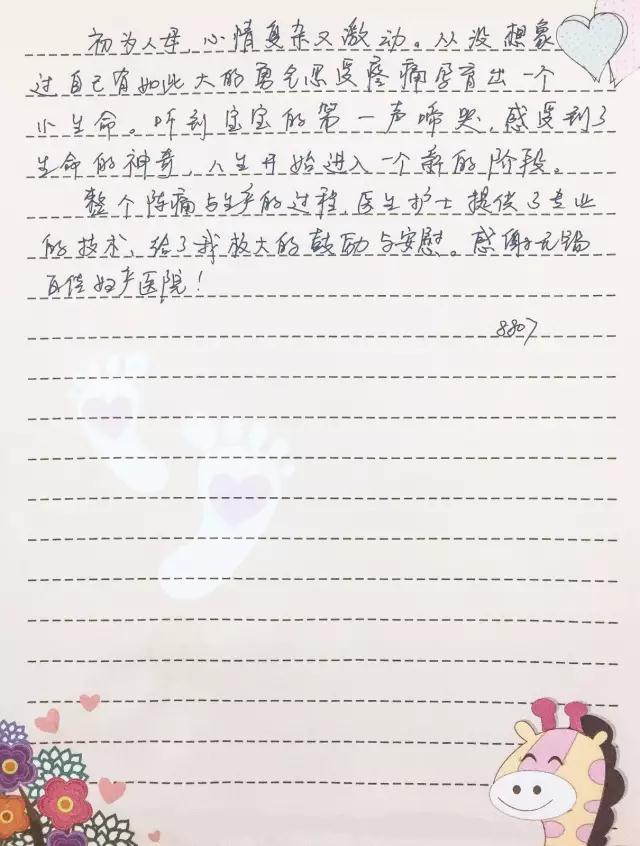 初为人母，心情复杂又激动。从没想象
过自己有如此大的勇气忍受疼痛孕育出一个
小生命。听到宝宝的第一声啼哭，感受到了
生命的神奇，人生开始进入一个新的阶段。
整个阵痛与生产的过程，医生护士提供了专业
的技术，给了我放大的鼓励与安慰。感谢无锡
百佳妇产医院！
8807